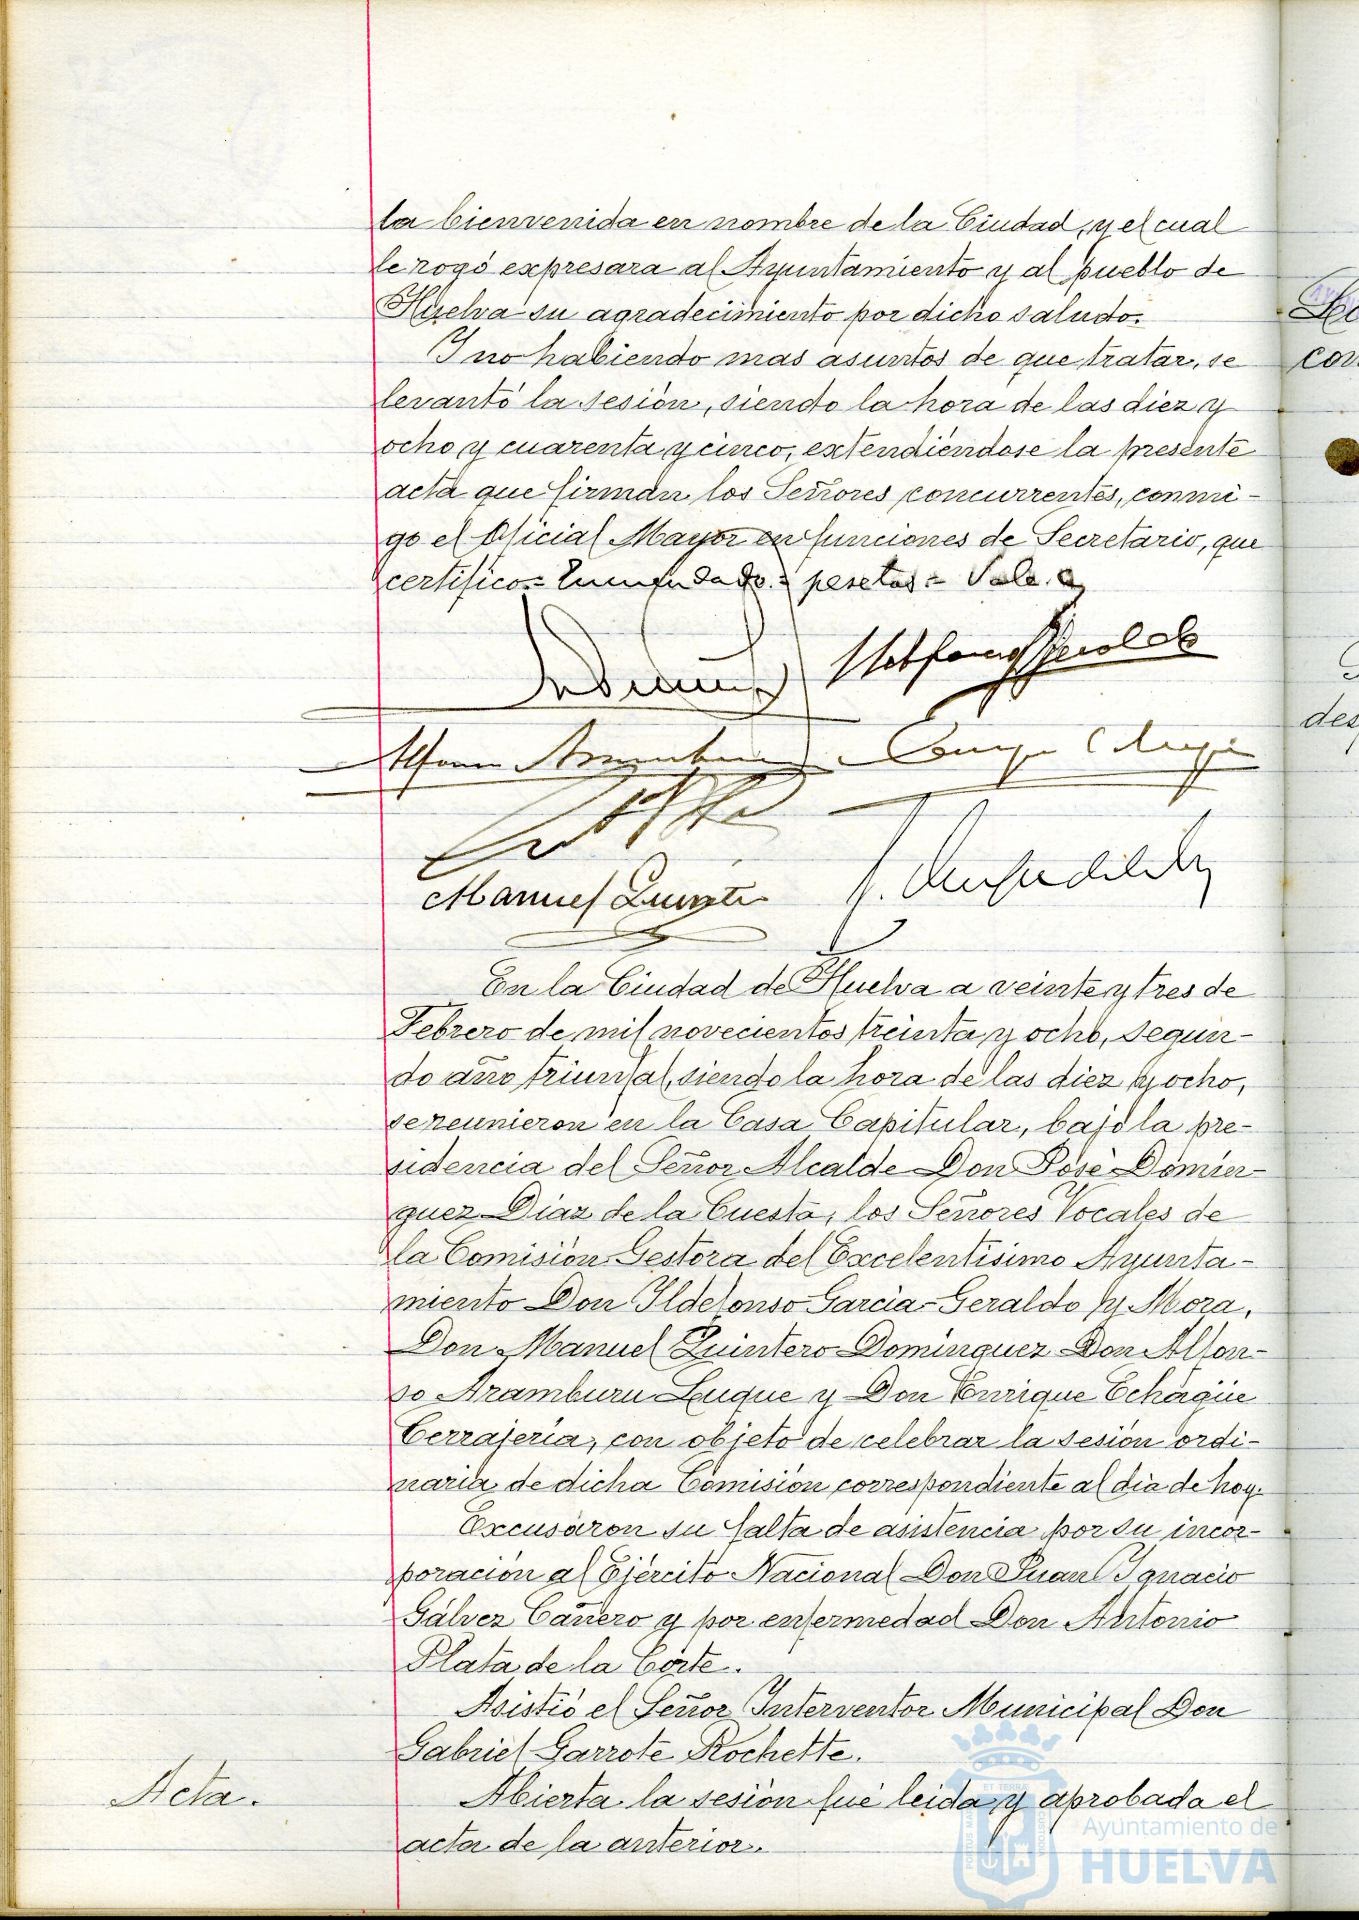 la bienvenida en nombre de la Ciudad, y el cual
le rogó expresara al Ayuntamiento y al pueblo de
Huelva su agradecimiento por dicho saludo.
Y no habiendo mas asuntos de que tratar, se
levantó la sesión, siendo la hora de las diez y
ocho y cuarenta y cinco, extendiéndose la presente
acta que firman los Señores concurrentes, conmi-
go el Oficial Mayor en funciones de Secretario, que
certifico.= Enmendado.= pesetas.= Vale.
Manuel Quintero
En la Ciudad de Huelva a veinte y tres de
Febrero de mil novecientos treinta y ocho, segun-
do año triunfal, siendo la hora de las diez y ocho,
se reunieron en la Casa Capitular, bajo la pre-
sidencia del Señor Alcalde Don José Domín-
guez Díaz de la Cuesta, los Señores Vocales de
la Comisión Gestora del Excelentísimo Ayunta-
miento Don Ildefonso García-Geraldo y Mora,
Don Manuel Quintero Domínguez Don Alfon-
so Aramburu Luque y Don Enrique Echagüe
Cerrajería, con objeto de celebrar la sesión ordi-
naria de dicha Comisión correspondiente al día de hoy.
Excusaron su falta de asistencia por su incor-
poración al Ejército Nacional Don Juan Ignacio
Gálvez Cañero y por enfermedad Don Antonio
Plata de la Corte.
Asistió el Señor Interventor Municipal Don
Gabriel Garrote Rochette.
Acta.
Abierta la sesión fué leida y aprobada el
acta de la anterior.
Ayuntamiento de
HUELVA